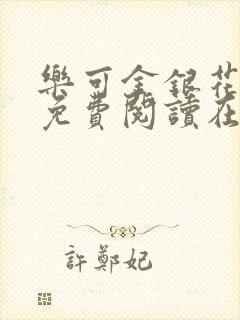 樂可金銀花
免費閱讀在
許鄭妃